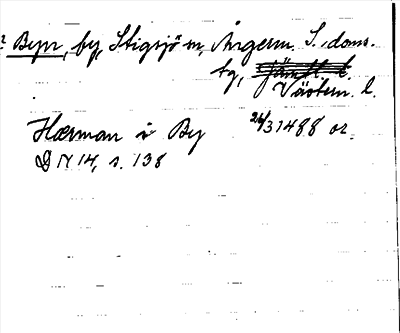 ? Byn, by, Stigsjö sn, Ångerm. S. doms.
tg, Jämtl. l.
Västern. l.
Hærman i By 26/3 1488 or.
D N 14, s. 138